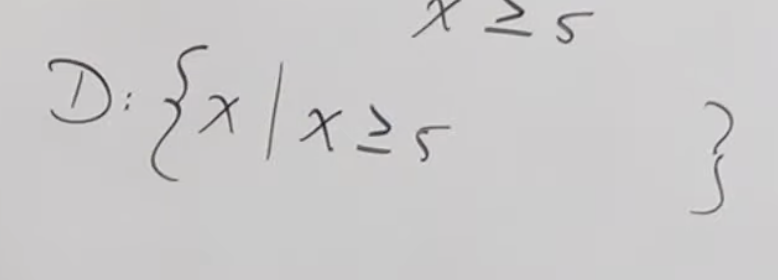 x ≥ 5
D: {x | x ≥ 5 }